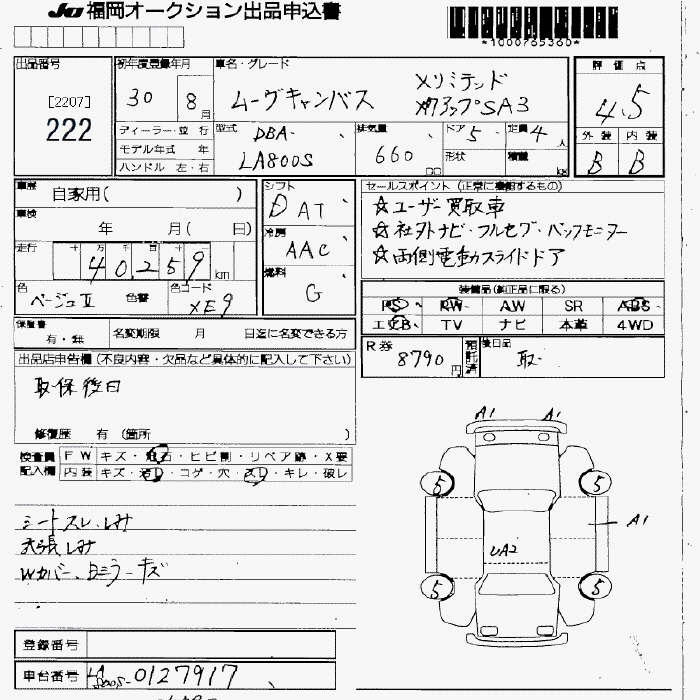 JU 福岡オークション出品申込書
*1000765360*
出品番号
[2207]
222
初年度登録年月
30 8月
車名・グレード
ムーヴキャンバス
Xリミテッド
メイクアップSA3
評価点
4.5
外装 内装
B B
ディーラー・並行
モデル年式 年
ハンドル 左・右
型式
DBA-
LA800S
排気量
660
cc
ドア 5
形状
定員 4人
積載 kg
車歴
自家用( )
車検
年 月( 日)
走行
十 万 千 百 十 一
40259 km
色
ベージュⅡ
色替
色コード
XE9
シフト
DAT
冷房
AAC
燃料
G
セールスポイント(正常に機能するもの)
☆ユーザー買取車
☆社外ナビ・フルセグ・バックモニター
☆両側電動スライドドア
装備品(純正品に限る)
PS PW AW SR ABS
エアB TV ナビ 本革 4WD
保証書
有・無
名変期限 月 日迄に名変できる方
R券
8790円
預託済
後日品
取
出品店申告欄(不良内容・欠品など具体的に記入して下さい)
取・保 後日
修復歴 有(箇所 )
検査員
記入欄
FW キズ・飛石・ヒビ割・リペア跡・X要
内装 キズ・汚レ・コゲ・穴・スレ・キレ・破レ
シートスレ、しみ
天張しみ
Wカバー、ミラーキズ
A1 A1
5 5
A1
UA2
5 5
登録番号
車台番号
LA800S-0127917